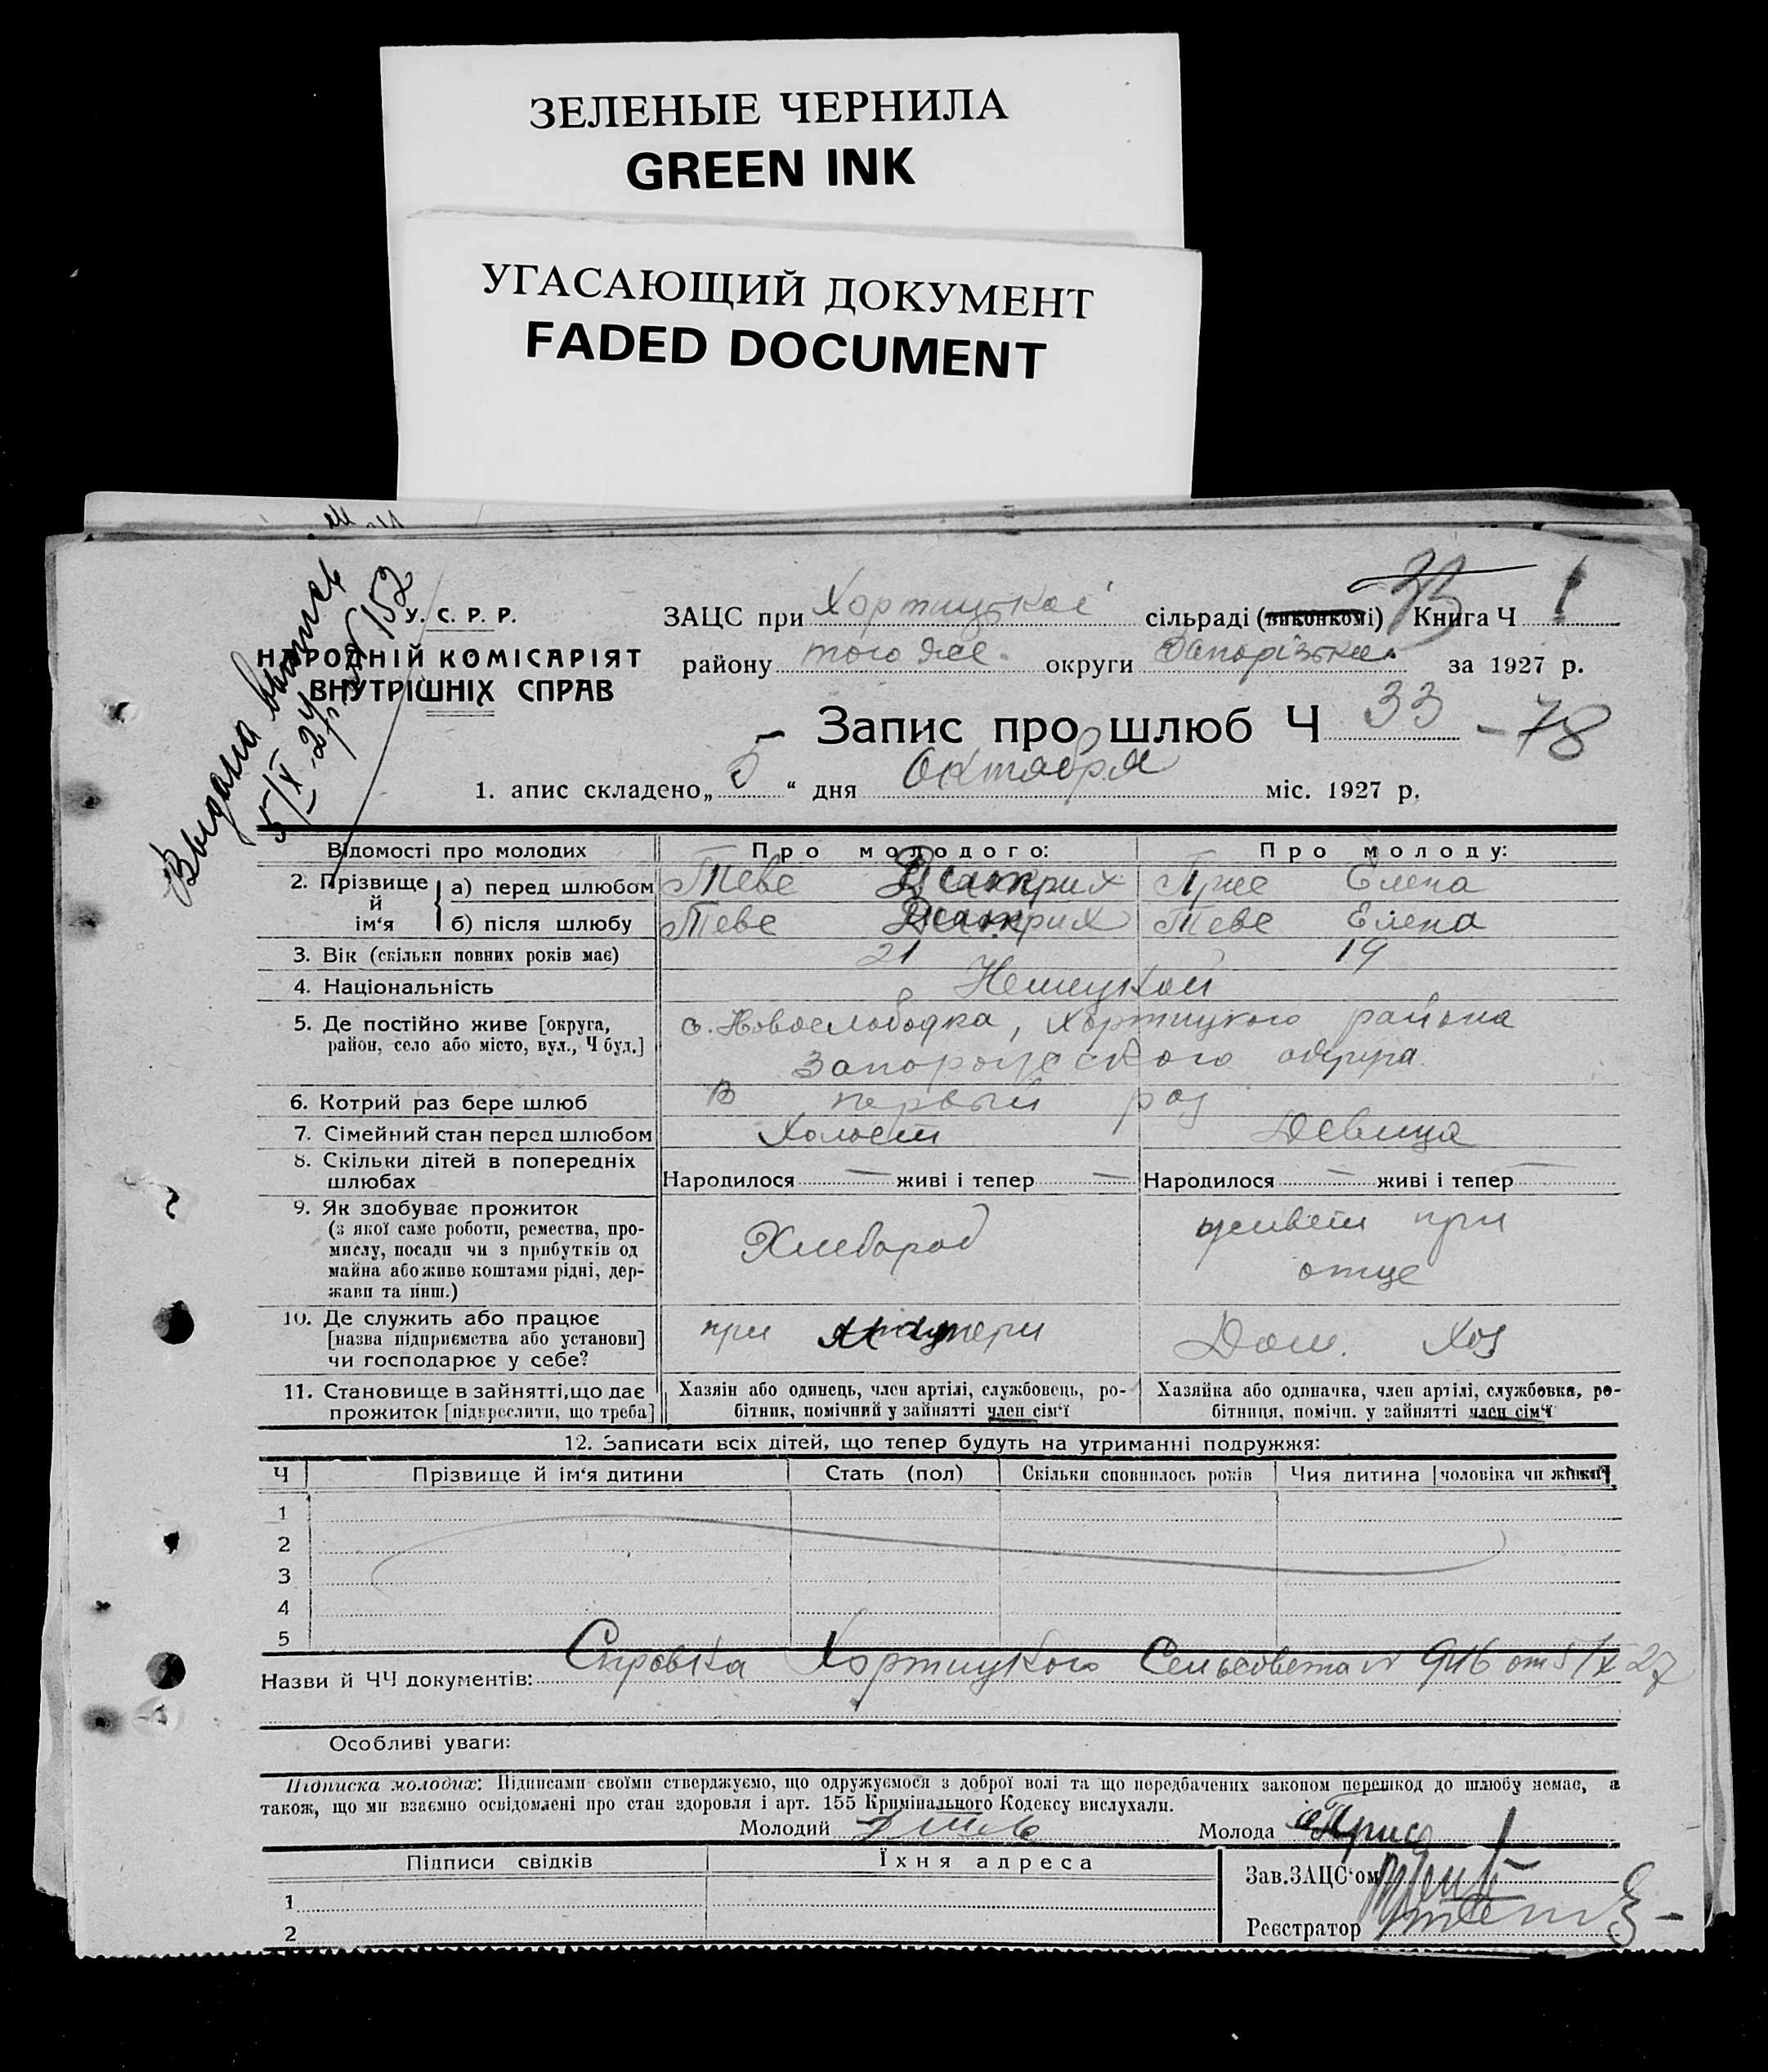 ЗЕЛЕНЫЕ ЧЕРНИЛА
GREEN INK
УГАСАЮЩИЙ ДОКУМЕНТ
FADED DOCUMENT
Выдана выпись
5/X-27 152
У. С. Р. Р.
НАРОДНІЙ КОМІСАРІЯТ
ВНУТРІШНІХ СПРАВ
ЗАЦС при Хортицької сільраді (виконкомі) Книга Ч 1
району того же округи Запорізька за 1927 р.
Запис про шлюб Ч 33 - 78
1. апис складено „ 5 “ дня Октября міс. 1927 р.
Відомості про молодих Про молодого: Про молоду:
2. Прізвище й ім‘я а) перед шлюбом Теве Генрих Прис Елена
б) після шлюбу Теве Генрих Теве Елена
3. Вік (скільки повних років має) 21 19
4. Національність Немецкой
5. Де постійно живе [округа, с. Новослободка, Хортицкого района
район, село або місто, вул., Ч буд.] Запорожского округа
6. Котрий раз бере шлюб В первый раз
7. Сімейний стан перед шлюбом Холост Девица
8. Скільки дітей в попередніх
шлюбах Народилося — живі і тепер — Народилося — живі і тепер —
9. Як здобуває прожиток
(з якої саме роботи, ремества, про-
мислу, посади чи з прибутків од
майна або живе коштами рідні, дер-
жави та инш.) Хлебороб живет при
отце
10. Де служить або працює
[назва підприємства або установи]
чи господарює у себе? при матери Дом. Хоз
11. Становище в зайнятті, що дає
прожиток [підкреслити, що треба]
Хазяін або одинець, член артілі, службовець, ро-
бітник, помічний у зайнятті член сім‘ї
Хазяйка або одиначка, член артілі, службовка, ро-
бітниця, помічн. у зайнятті член сім‘ї
12. Записати всіх дітей, що тепер будуть на утриманні подружжя:
Ч Прізвище й ім‘я дитини Стать (пол) Скільки сповнилось років Чия дитина [чоловіка чи жінки]
1
2
3
4
5
Назви й ЧЧ документів: Справка Хортицкого Сельсовета № 916 от 5/X 27
Особливі уваги:
Підписка молодих: Підписами своїми стверджуємо, що одружуємося з доброї волі та що передбачених законом перешкод до шлюбу немає, а
також, що ми взаємно освідомлені про стан здоровля і арт. 155 Кримінального Кодексу вислухали.
Молодий Молода Прис
Підписи свідків Їхня адреса
1
2
Зав. ЗАЦС‘ом
Реєстратор